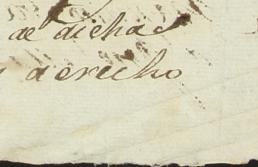 de dicha
y derecho